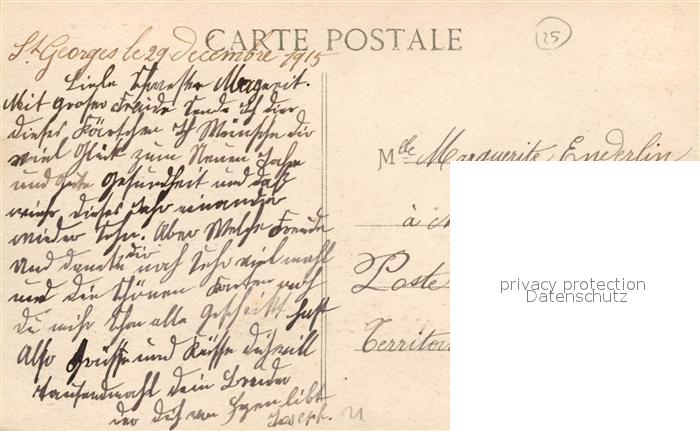 CARTE POSTALE
25
St Georges le 29 decembre 1915
Liebe Schwester Magerit.
Mit groser Freude sende Ich dir
dieses Kärtchen Ich Wünsche dir
viel Glück zum Neuen Jahre
und gute Gesundheit und daß
wir dieses Jahr einander
wieder sehn. Aber Welche Freude
Und danke dir noch sehr viel mahl
und die schönen Karten
du mihr schon alle geschickt hast
Also Grüsse und Küsse dich vill
tausendmahl dein Bruder
der dich von Herzen libt
Joseph.
Mlle Marguerite Enderlin
à
Poste
Territoi
privacy protection
Datenschutz